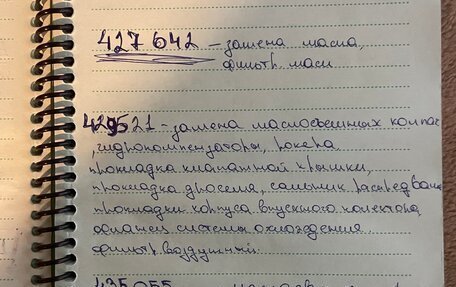 427 642 – замена масла,
фильтр масл
429521 – замена маслосъемных колпач
, гидрокомпенсаторы, рокера
прокладка клапанной крышки,
прокладка дроселя, сальник распредвала
прокладки корпуса впускного колектора,
фланец системы охлождения
фильтр воздушный.
435055